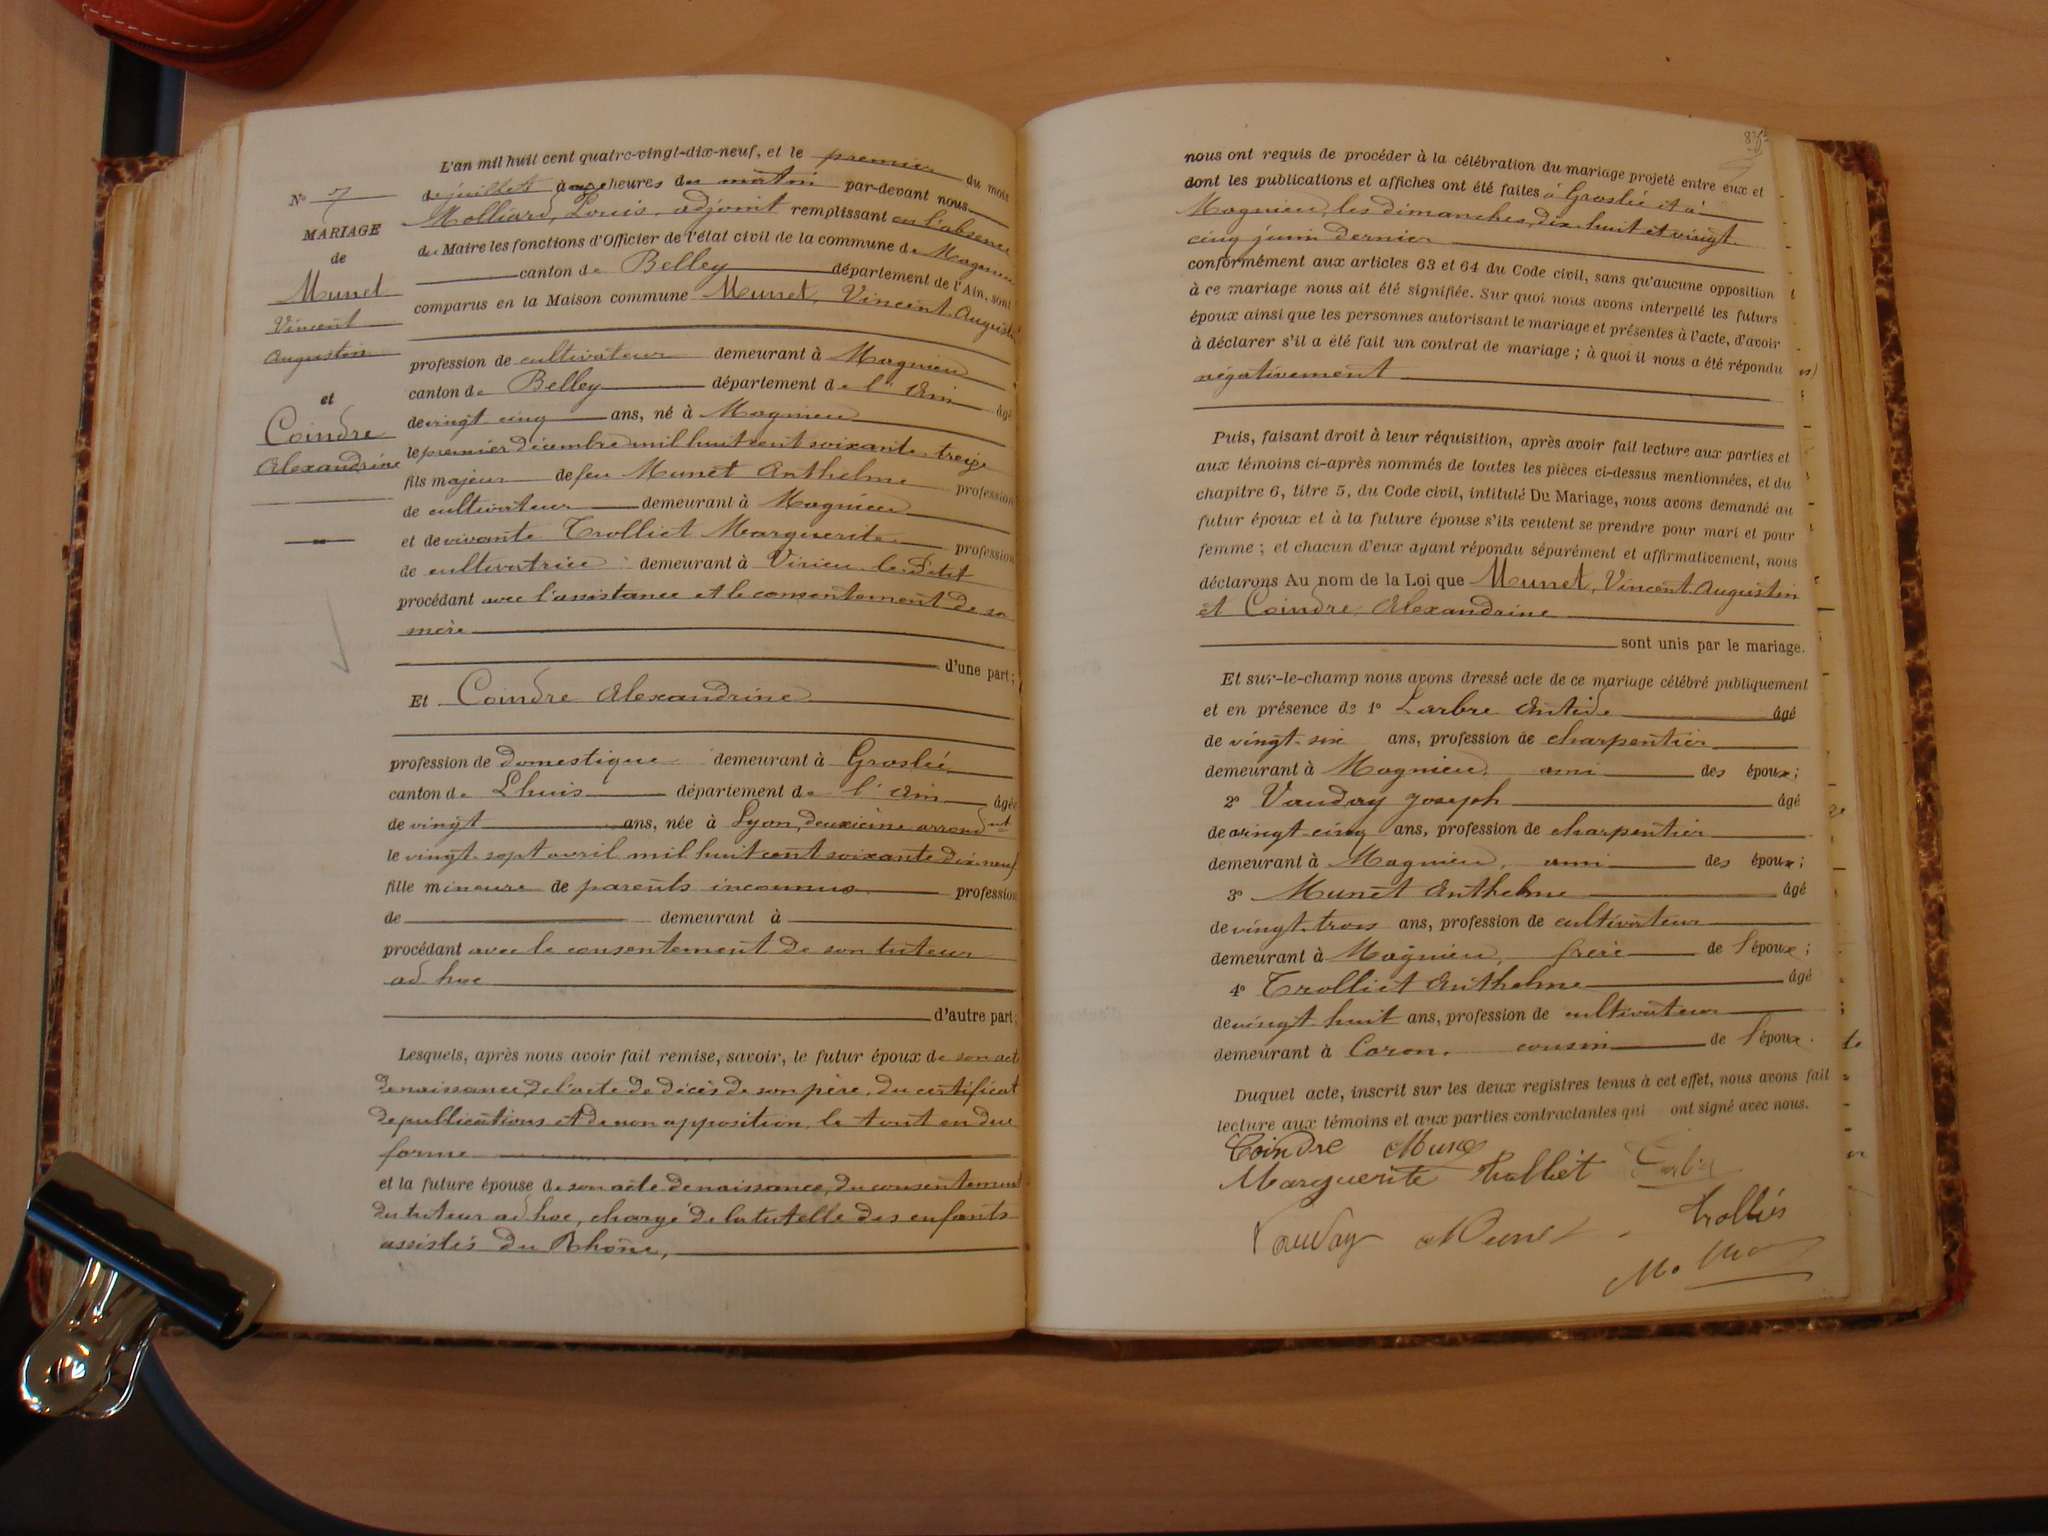 L'an mil huit cent quatre-vingt-dix-neuf, et le premier du mois
de juillet à onze heures du matin par-devant nous
Molliard, Louis, adjoint remplissant en l'absence
du Maire les fonctions d'Officier de l'état civil de la commune de Magnieu
canton de Belley département de l'Ain, sont
comparus en la Maison commune Munet, Vincent Augustin
profession de cultivateur demeurant à Magnieu
canton de Belley département de l'Ain âgé
de vingt cinq ans, né à Magnieu
le premier décembre mil huit cent soixante treize
fils majeur de feu Munet Anthelme profession
de cultivateur demeurant à Magnieu
et de vivante Trolliet Marguerite profession
de cultivatrice demeurant à Virieu le Petit
procédant avec l'assistance et le consentement de sa
mère
d'une part;
Et Coindre Alexandrine
profession de domestique demeurant à Groslée
canton de Lhuis département de l'Ain âgée
de vingt ans, née à Lyon, deuxième arrondnt
le vingt sept avril mil huit cent soixante dix-neuf
fille mineure de parents inconnus profession
de demeurant à
procédant avec le consentement de son tuteur
ad hoc
d'autre part;
Lesquels, après nous avoir fait remise, savoir, le futur époux de son acte
de naissance, de l'acte de décès de son père, du certificat
de publications et de non opposition, le tout en due
forme
et la future épouse de son acte de naissance, du consentement
du tuteur ad hoc, chargé de la tutelle des enfants
assistés du Rhône,
No 7
MARIAGE
de
Munet
Vincent
Augustin
et
Coindre
Alexandrine
nous ont requis de procéder à la célébration du mariage projeté entre eux et
dont les publications et affiches ont été faites à Groslée et à
Magnieu, les dimanches, dix-huit et vingt-
cinq juin dernier
conformément aux articles 63 et 64 du Code civil, sans qu'aucune opposition
à ce mariage nous ait été signifiée. Sur quoi nous avons interpellé les futurs
époux ainsi que les personnes autorisant le mariage et présentes à l'acte, d'avoir
à déclarer s'il a été fait un contrat de mariage; à quoi il nous a été répondu
négativement
Puis, faisant droit à leur réquisition, après avoir fait lecture aux parties et
aux témoins ci-après nommés de toutes les pièces ci-dessus mentionnées, et du
chapitre 6, titre 5, du Code civil, intitulé Du Mariage, nous avons demandé au
futur époux et à la future épouse s'ils veulent se prendre pour mari et pour
femme; et chacun d'eux ayant répondu séparément et affirmativement, nous
déclarons Au nom de la Loi que Munet, Vincent Augustin
et Coindre Alexandrine
sont unis par le mariage.
Et sur-le-champ nous avons dressé acte de ce mariage célébré publiquement
et en présence de 1o Larbre Antide âgé
de vingt-six ans, profession de charpentier
demeurant à Magnieu, ami des époux;
2o Vauday Joseph âgé
de vingt-cinq ans, profession de charpentier
demeurant à Magnieu, ami des époux;
3o Munet Anthelme âgé
de vingt-trois ans, profession de cultivateur
demeurant à Magnieu, frère de l'époux;
4o Trolliet Anthelme âgé
de vingt huit ans, profession de cultivateur
demeurant à Coron, cousin de l'époux.
Duquel acte, inscrit sur les deux registres tenus à cet effet, nous avons fait
lecture aux témoins et aux parties contractantes qui ont signé avec nous.
Coindre Munet
Marguerite Trolliet
Vauday Munet